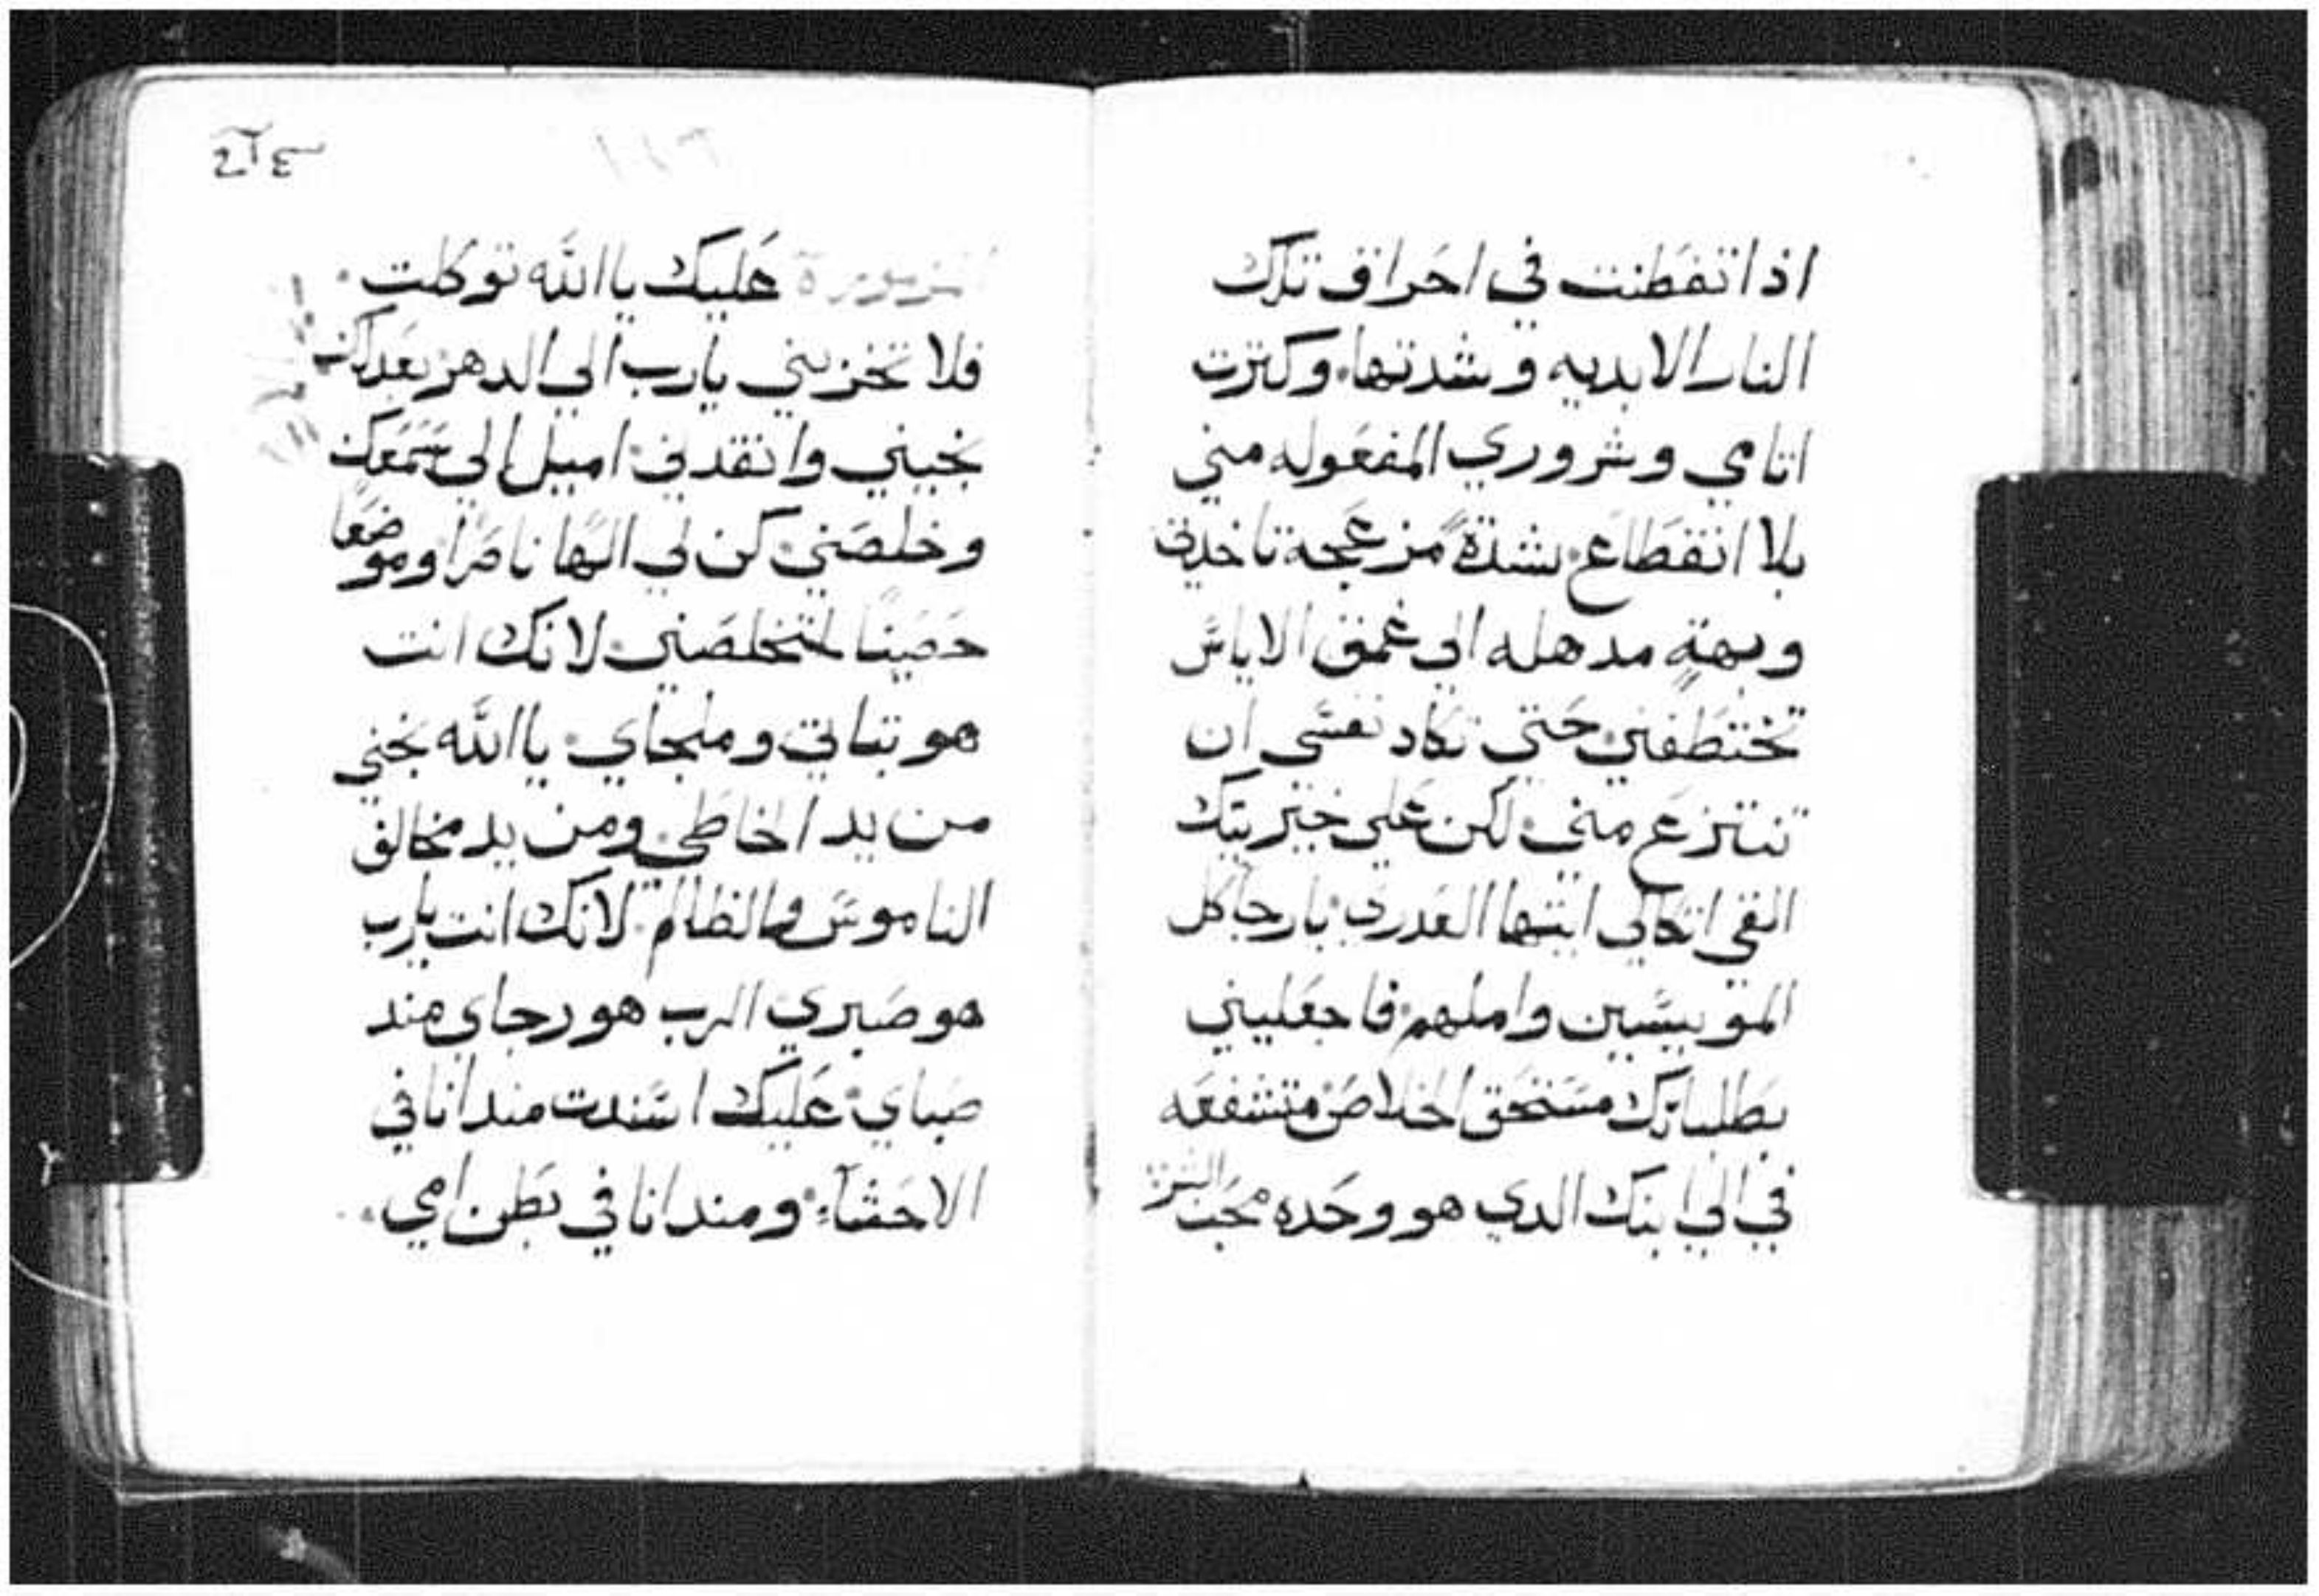 اذا تفطنت في احراق تلك
النار الابديه وشدتها. وكترت
اتامي وشروري المفعوله مني
بلا انقطاع. بشدةً مزعجة تاخدني
وبهتةٍ مدهله الى عمق الاياس
تختطفني حتى تكاد نفسي ان
تنتزع مني. لكن على خيريتك
القي اتكالي ايتها العدرى. يارجا كل
المويسين واملهم. فاجعليني
بطلباتك مستحق الخلاص متشفعه
في الى ابنك الدي هو وحده محب البشر
عليك ياالله توكلت.
فلا تخزيني يارب الى الدهر بعدلك
نجيني وانقدني. اميل الي سمعك
وخلصني. كن لي الهًا ناصرًا وموضعًا
حصينًا لتخلصني. لانك انت
هو تباتي وملجاي. ياالله نجني
من يد الخاطي. ومن يد مخالف
الناموس والظالم. لانك انت يارب
هو صبري الرب هو رجاي مند
صباي. عليك استندت مند انا في
الاحشآء. ومند انا في بطن امي.